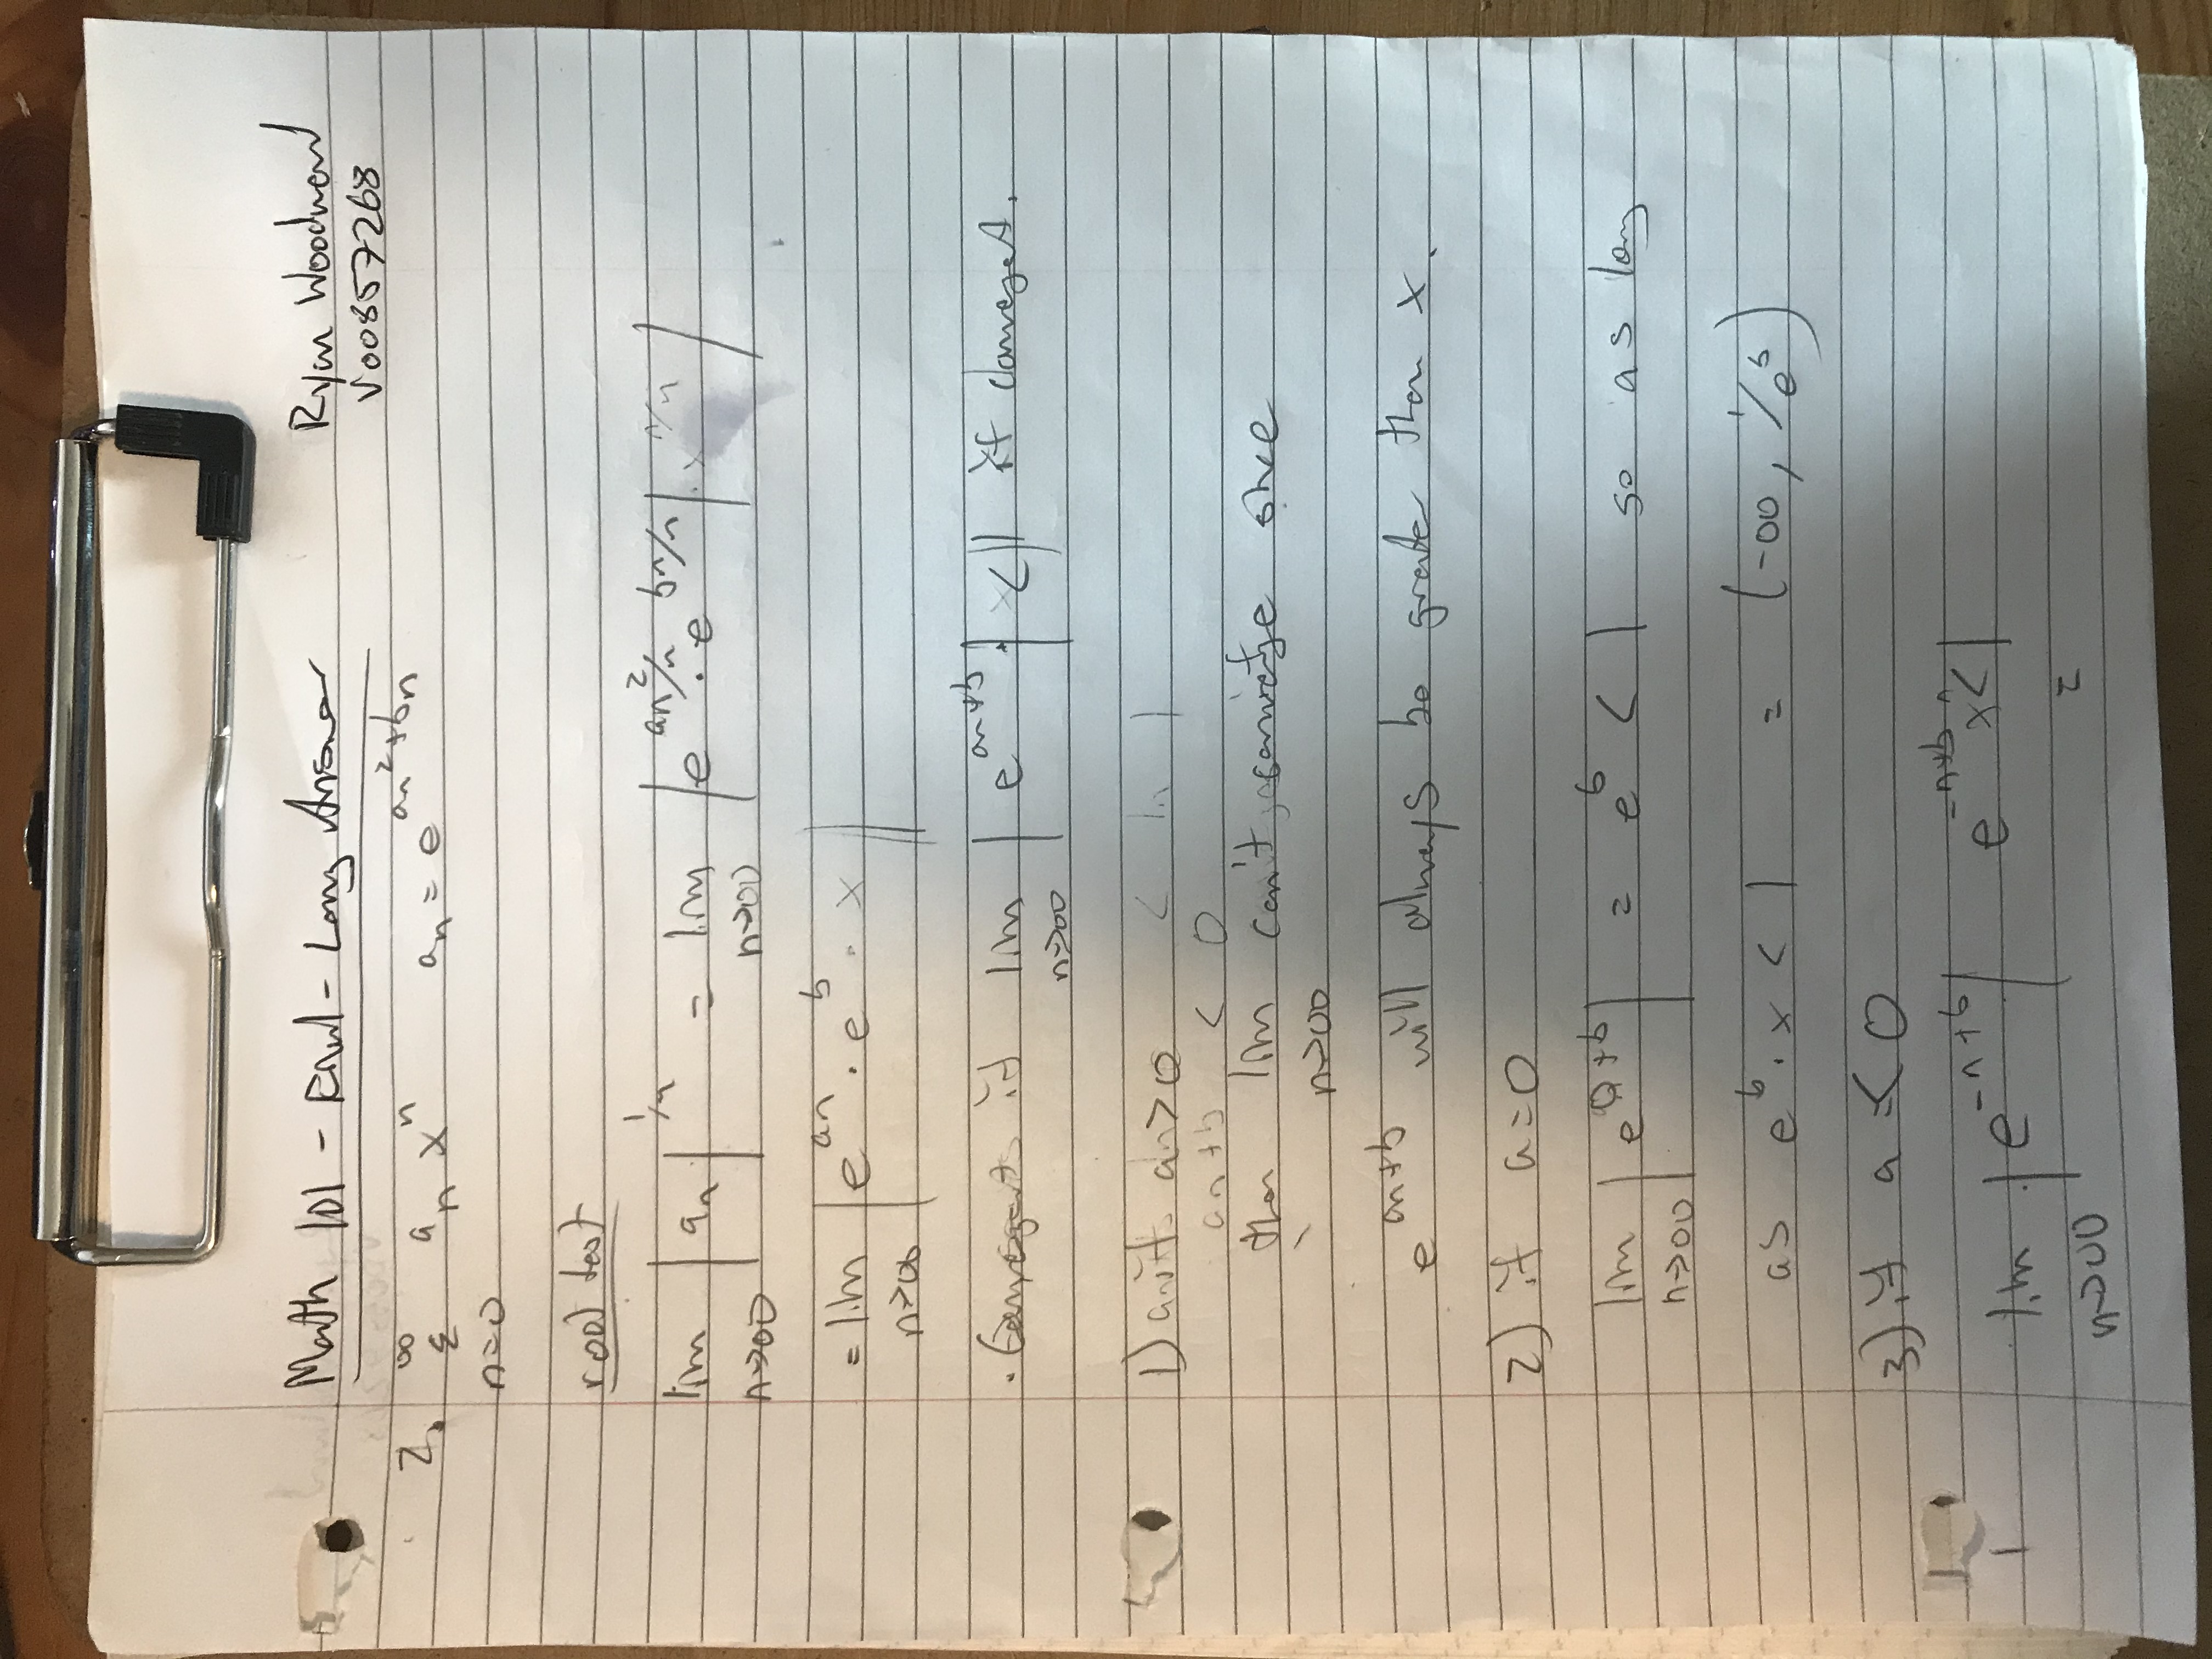 Math 101 - Final - Long Answer
Ryan Woodward
V00857268
2. ∞ Σ n=0 aₙ xⁿ aₙ = e^(an²+bn)
root test
lim n→∞ |aₙ|^(1/n) = lim n→∞ |e^(an²/n) · e^(bn/n)| · x^(n/n)|
= lim n→∞ |e^(an) · e^b · x|
if lim n→∞ |e^(an+b) · x| if converges.
1) if an>0 < ln 1
an+b < 0
then lim n→∞ can't converge since
e^(an+b) will always be greater than x.
2) if a=0
lim n→∞ |e^(0+b)| = e^b < 1 so as long
as e^b · x < 1 = (-∞, 1/e^b)
3) if a < 0
lim n→∞ |e^(-n+b)| e^(-n+b) xⁿ < 1
=